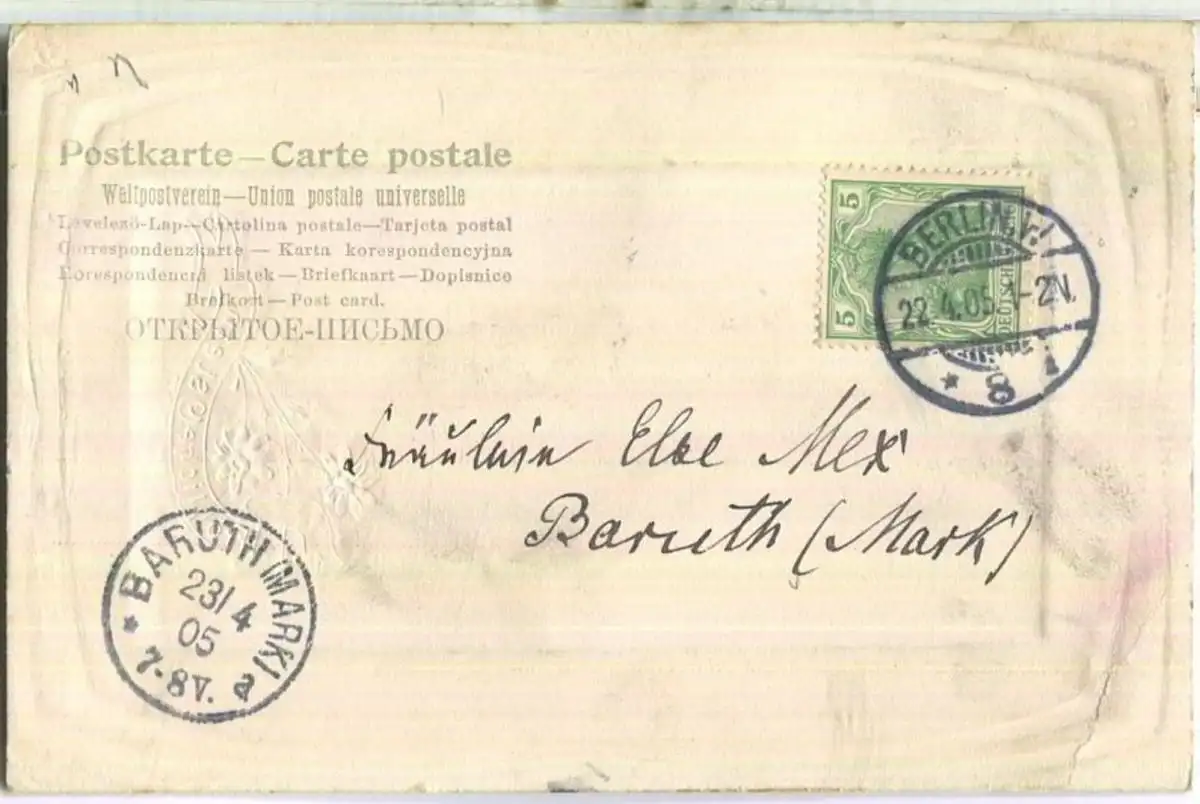 Postkarte — Carte postale
Weltpostverein — Union postale universelle
Levelező-Lap — Cartolina postale — Tarjeta postal
Correspondenzkarte — Karta korespondencyjna
Korespondenční listek — Briefkaart — Dopisnice
Brefkort — Post card.
ОТКРЫТОЕ-ПИСЬМО
5
5
DEUTSCH
BERLIN
22.4.05.1-2N.
* 8
Fräulein Else Mex
Baruth (Mark)
* BARUTH (MARK) a
23/4
05
7-8V.